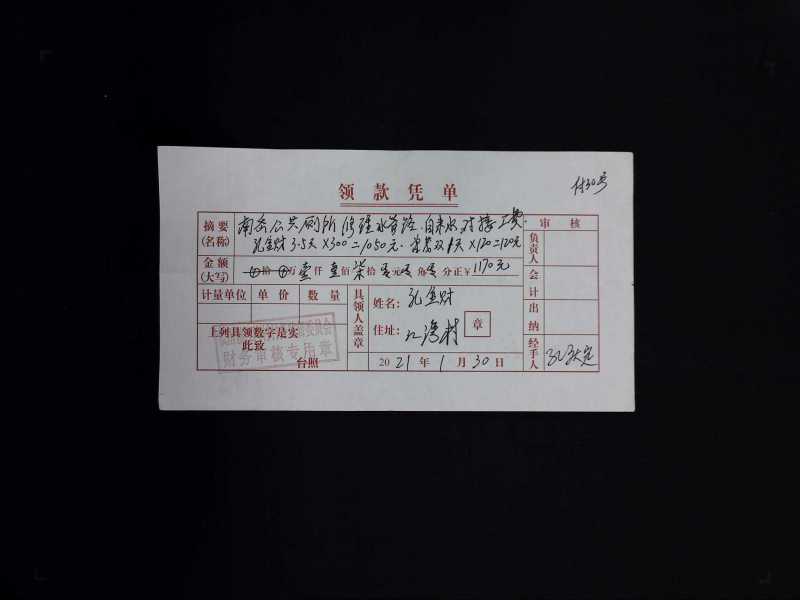 领款凭单
付30号
摘要(名称) 南岙公共厕所修理水管路.自来水对接工费. 审核
孔金财 3.5天×300=1050元. 双1天×120=120元 负责人
金额(大写) 拾 万壹仟壹佰柒拾零元零角零分正¥1170元
会计
计量单位 单价 数量 具领人盖章 姓名:孔金财
出纳
上列具领数字是实 住址:江湾村 章
此致
财务审核专用章
台照 2021年1月30日 经手人